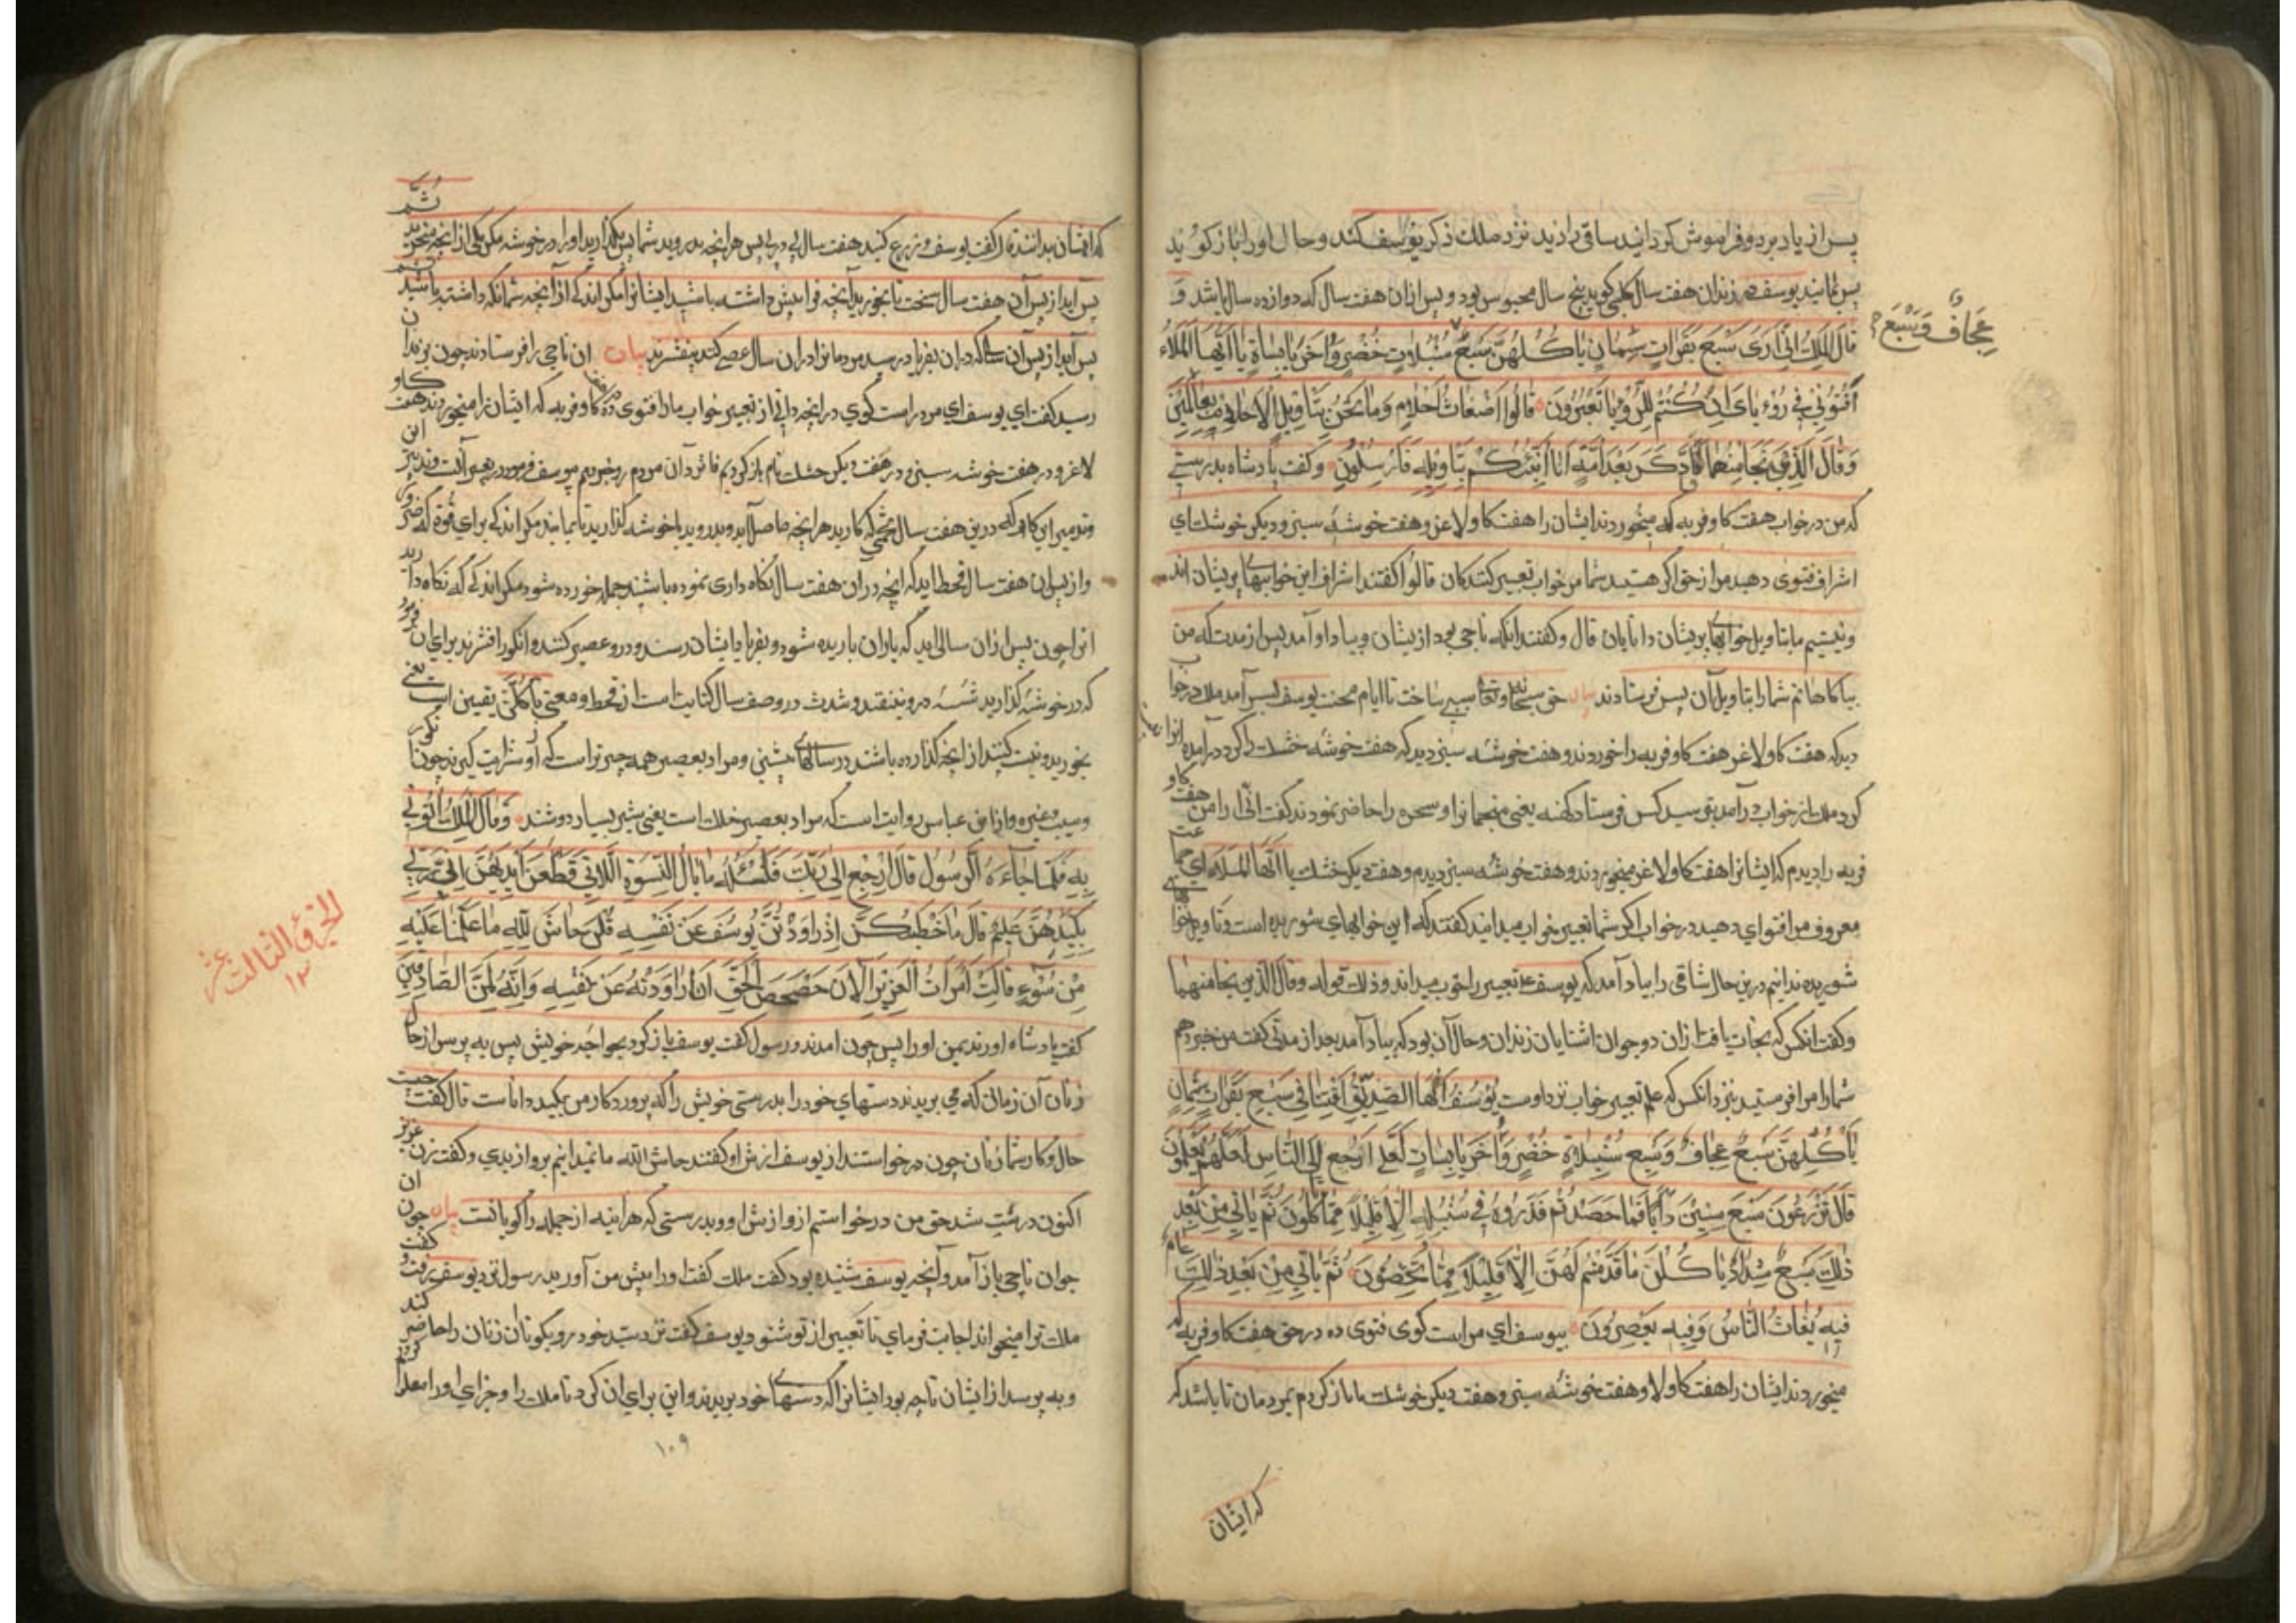 پس از یاد ببرد و فراموش کردانید ساقی را دید نزد ملک ذکر یوسف کند و حال او را باز کوئید
پس بمانید یوسف در زندان هفت سال کلبی کوید پنج سال محبوس بود و پس ازان هفت سال که دوازده سال باشد و
قَالَ الْمَلِكُ اِنّٖى اَرٰى سَبْعَ بَقَرَاتٍ سِمَانٍ يَاكُلُهُنَّ سَبْعٌ سُنْبُلَاتٍ خُضْرٍ وَاُخَرَ يَابِسَاتٍ يَا اَيُّهَا الْمَلَاُ
عِجَافٌ وَسَبْعَ
اَفْتُوْنِىْ فِى رُؤْيَاىَ اِنْ كُنْتُمْ لِلرُّؤْيَا تَعْبُرُوْنَ قَالُوْا اَضْغَاثُ اَحْلَامٍ وَمَا نَحْنُ بِتَاْوِيْلِ الْاَحْلَامِ بِعَالِمِيْنَ
وَقَالَ الَّذِىْ نَجَا مِنْهُمَا وَادَّكَرَ بَعْدَ اُمَّةٍ اَنَا اُنَبِّئُكُمْ بِتَاْوِيْلِهٖ فَاَرْسِلُوْنِ وکفت پادشاه بدرستی
که من در خواب هفت کاو فربه که میخوردند ایشان را هفت کاو لاغر و هفت خوشه سبز و دیکر خوشهای
اشراف فتوی دهید مرا از حق اکر هستید شما مر خواب تعبیر کنندکان قالوا کفتند اشراف این خوابهای پریشان اند
و نیستیم ما بتاویل خوابهای پریشان دانایان قال و کفتند انکه ناجی بود از یشان و بیاد او آمد پس از مدت که من
بیاکاهانم شما را بتاویل آن پس فرستادند بیان حق سبحانه و تعالی سببی ساخت تا ایام محنت یوسف بسر آمد ملک در خواب
دید که هفت کاو لاغر هفت کاو فربه را خوردند و هفت خوشه سبز دید که هفت خوشه خشک را کرد در آمده
کرد ملک از خواب در آمد بترسید کس فرستاد کهنه یعنی منجمانرا و سحره را حاضر نمودند کفت انّی ارا من هفت کاو
فربه را دیدم که ایشانرا هفت کاو لاغر میخوردند و هفت خوشه سبز دیدم و هفت دیکر خشک یا ایها الملاء ای
معروف مرا فتوای دهید در خواب اکر شما تعبیر خواب میدانید کفتند که این خوابهای شوریده است و تاویل خوابهای
شوریده ندانیم درین حال ساقی را بیاد آمد که یوسف تعبیر را خوب میداند و ذلک قوله وقال الذین نجا منهما
وکفت انکس که نجات یافت ازان دو جوان اشنایان زندان و حال آن بود که بیاد آمد بعد از مدتی کفت من خبر دهم
شما را مرا فرستید نزد انکس که علم تعبیر خواب نزد اوست يُوْسُفُ اَيُّهَا الصِّدِّيْقُ اَفْتِنَا فِى سَبْعِ بَقَرَاتٍ سِمَانٍ
يَاْكُلُهُنَّ سَبْعٌ عِجَافٌ وَسَبْعِ سُنْبُلَاتٍ خُضْرٍ وَاُخَرَ يَابِسَاتٍ لَعَلِّى اَرْجِعُ اِلَى النَّاسِ لَعَلَّهُمْ يَعْلَمُوْنَ
قَالَ تَزْرَعُوْنَ سَبْعَ سِنِيْنَ دَاَبًا فَمَا حَصَدْتُمْ فَذَرُوْهُ فِى سُنْبُلِهٖ اِلَّا قَلِيْلًا مِمَّا تَاْكُلُوْنَ ثُمَّ يَاْتِى مِنْ بَعْدِ
ذٰلِكَ سَبْعٌ شِدَادٌ يَاْكُلْنَ مَا قَدَّمْتُمْ لَهُنَّ اِلَّا قَلِيْلًا مِمَّا تُحْصِنُوْنَ ثُمَّ يَاْتِى مِنْ بَعْدِ ذٰلِكَ عَامٌ
فِيْهِ يُغَاثُ النَّاسُ وَفِيْهِ يَعْصِرُوْنَ یوسف ای مر راست کوی فتوی ده در حق هفت کاو فربه که
میخوردند ایشان را هفت کاو لا و هفت خوشه سبز و هفت دیکر خوشک ما باز کردم بمردمان تا باشد که
که ایشان
که ایشان بدانند قال کفت یوسف و زرع کنید هفت سال پی در پی پس هر انچه بدروید شما پس بکذارید اورا در خوشه مکر یکی از انچه میخورید ثم
پس آید از پس آن هفت سال سخت تا بخورید آنچه فرا پیش داشته باشید ایشانرا مکر اندکی از آنچه شما نکه داشته باشید
پس آید از پس آن سالکه دران بفریاد رسد مردمانرا دران سال عصر کنند بیفشرند بیان ان ناجی را فرستادند چون بزندان
رسید کفت ای یوسف ای مرد راست کوی در انچه دانی از تعبیر خواب ما را فتوی ده کاو فربه که ایشان را میخوردند هفت کاو
لاغر و در هفت خوشه سبز و در هفت دیکر خشک تام باز کردیم فائز دآن مردم
و تدبیر این کار که درین هفت سال تخمی که کارید هر انچه حاصل آید و بدروید با خوشه کذارید تا بماند مکر اندکی برای قوة که
و از پس ان هفت سال قحط اید که انچه در آن هفت سال نکاه داری نموده باشید جمله خورده شود مکر اندکی که نکاه دارید
انرا چون پس ازان سالی اید که باران باریده شود و بفریاد ایشان رسند و درو عصیر کنند و انکور افشرند برای ان فرمود
که در خوشه کذارید در و نیفتد و شدت در وصف سال کنایت است از قحط و معنی یاکلن یقین است یعنی
بخورید و نیت کنید از انچه کذارده باشند در سالهای پیشین و مراد بعصیر همه چیز است که از و شربت کیرند چون انکور
و سیب و غیره و از ابن عباس روایت است که مراد بعصیر حلب است یعنی شیر بسیار دوشند وَقَالَ الْمَلِكُ ائْتُوْنِى
بِهٖ فَلَمَّا جَآءَهُ الرَّسُوْلُ قَالَ ارْجِعْ اِلٰى رَبِّكَ فَاسْئَلْهُ مَا بَالُ النِّسْوَةِ اللَّاتِى قَطَّعْنَ اَيْدِيَهُنَّ اِنَّ رَبِّى
بِكَيْدِهِنَّ عَلِيْمٌ قَالَ مَا خَطْبُكُنَّ اِذْ رَاوَدْتُنَّ يُوْسُفَ عَنْ نَفْسِهٖ قُلْنَ حَاشَ لِلّٰهِ مَا عَلِمْنَا عَلَيْهِ
الجزؤ الثالث عشر
١٣
مِنْ سُوْءٍ قَالَتِ امْرَاَتُ الْعَزِيْزِ الْاٰنَ حَصْحَصَ الْحَقُّ اَنَا رَاوَدْتُهُ عَنْ نَفْسِهٖ وَاِنَّهُ لَمِنَ الصَّادِقِيْنَ
کفت پادشاه اورند بمن اورا پس چون امدند و رسول کفت یوسف باز کرد بخواجه خویش پس به پرس از حال
زنان آن زمان که می بریدند دستهای خود را بدرستی خویش را که پروردکار من بکید دانا است قال کفت چیست
حال و کار شما زنان چون درخواستند از یوسف از نش او کفتند حاش الله ما نمیدانیم برو از بدی و کفت زن عزیز
اکنون درست شد حق من درخواستم از و از نش او و بدرستی که هراینه از جمله راکویانست بیان چون ان
جوان ناجی باز آمد و آنچه یوسف شنیده بود کفت ملک کفت او را پیش من آورید رسول نزد یوسف برفت و کفت
ملک ترا میخواند اجابت فرمای تا تعبیر از تو شنود یوسف کفت نزد سید خود رو بکو تا ان زنان را حاضر کند
و به پرسد از ایشان تا چه بود ایشانرا که دستهای خود بریدند و این برای ان کرد تا ملک را و جزای او را معلوم
١٠٩